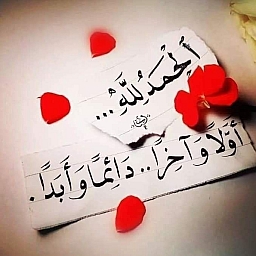 الْحَمْدُ لِلَّهِ...
أَوَّلًا وَآخِرًا.. دَائِمًا وَأَبَدًا.